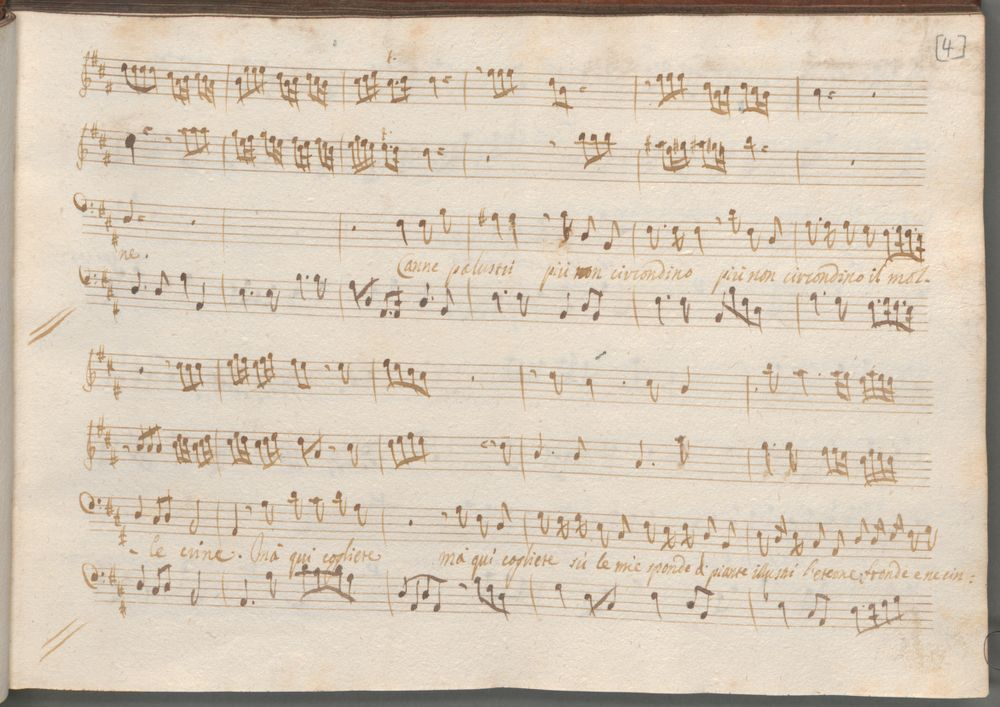 [4]
ne. Canne palustri più non circondino più non circondino il mol-
- le crine. Mà qui cogliete mà qui cogliete sù le mie sponde di piante illustri l'eterne fronde e ne cin=